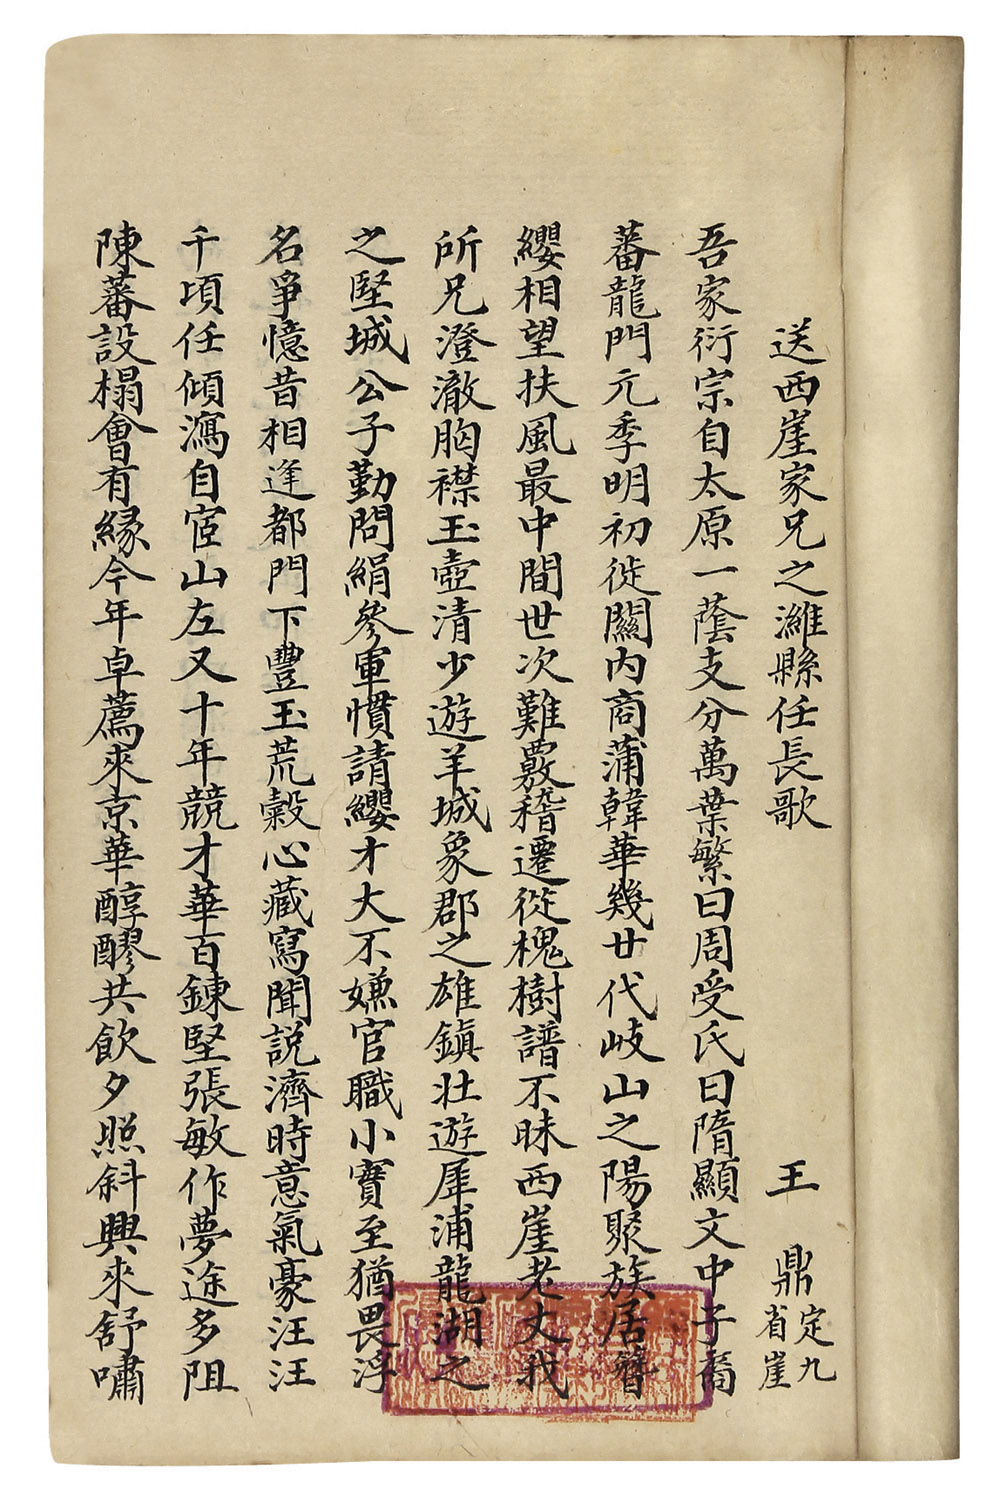 送西崖家兄之濰縣任長歌
王鼎定九省崖
吾家衍宗自太原一蔭支分萬葉繁曰周受氏曰隋顯文中子裔
蕃龍門元季明初徙關內商蒲韓華幾廿代岐山之陽聚族居簪
纓相望扶風最中間世次難覈稽遷從槐樹譜不昧西崖老丈我
所兄澄澈胸襟玉壺清少遊羊城象郡之雄鎮壯遊犀浦龍湖之
之堅城公子勤問絹參軍慣請纓才大不嫌官職小賓至猶畏浮
名爭憶昔相逢都門下豐玉荒穀心藏寫聞說濟時意氣豪汪汪
千頃任傾瀉自宦山左又十年競才華百鍊堅張敏作夢途多阻
陳蕃設榻會有緣今年卓薦來京華醇醪共飲夕照斜興來舒嘯